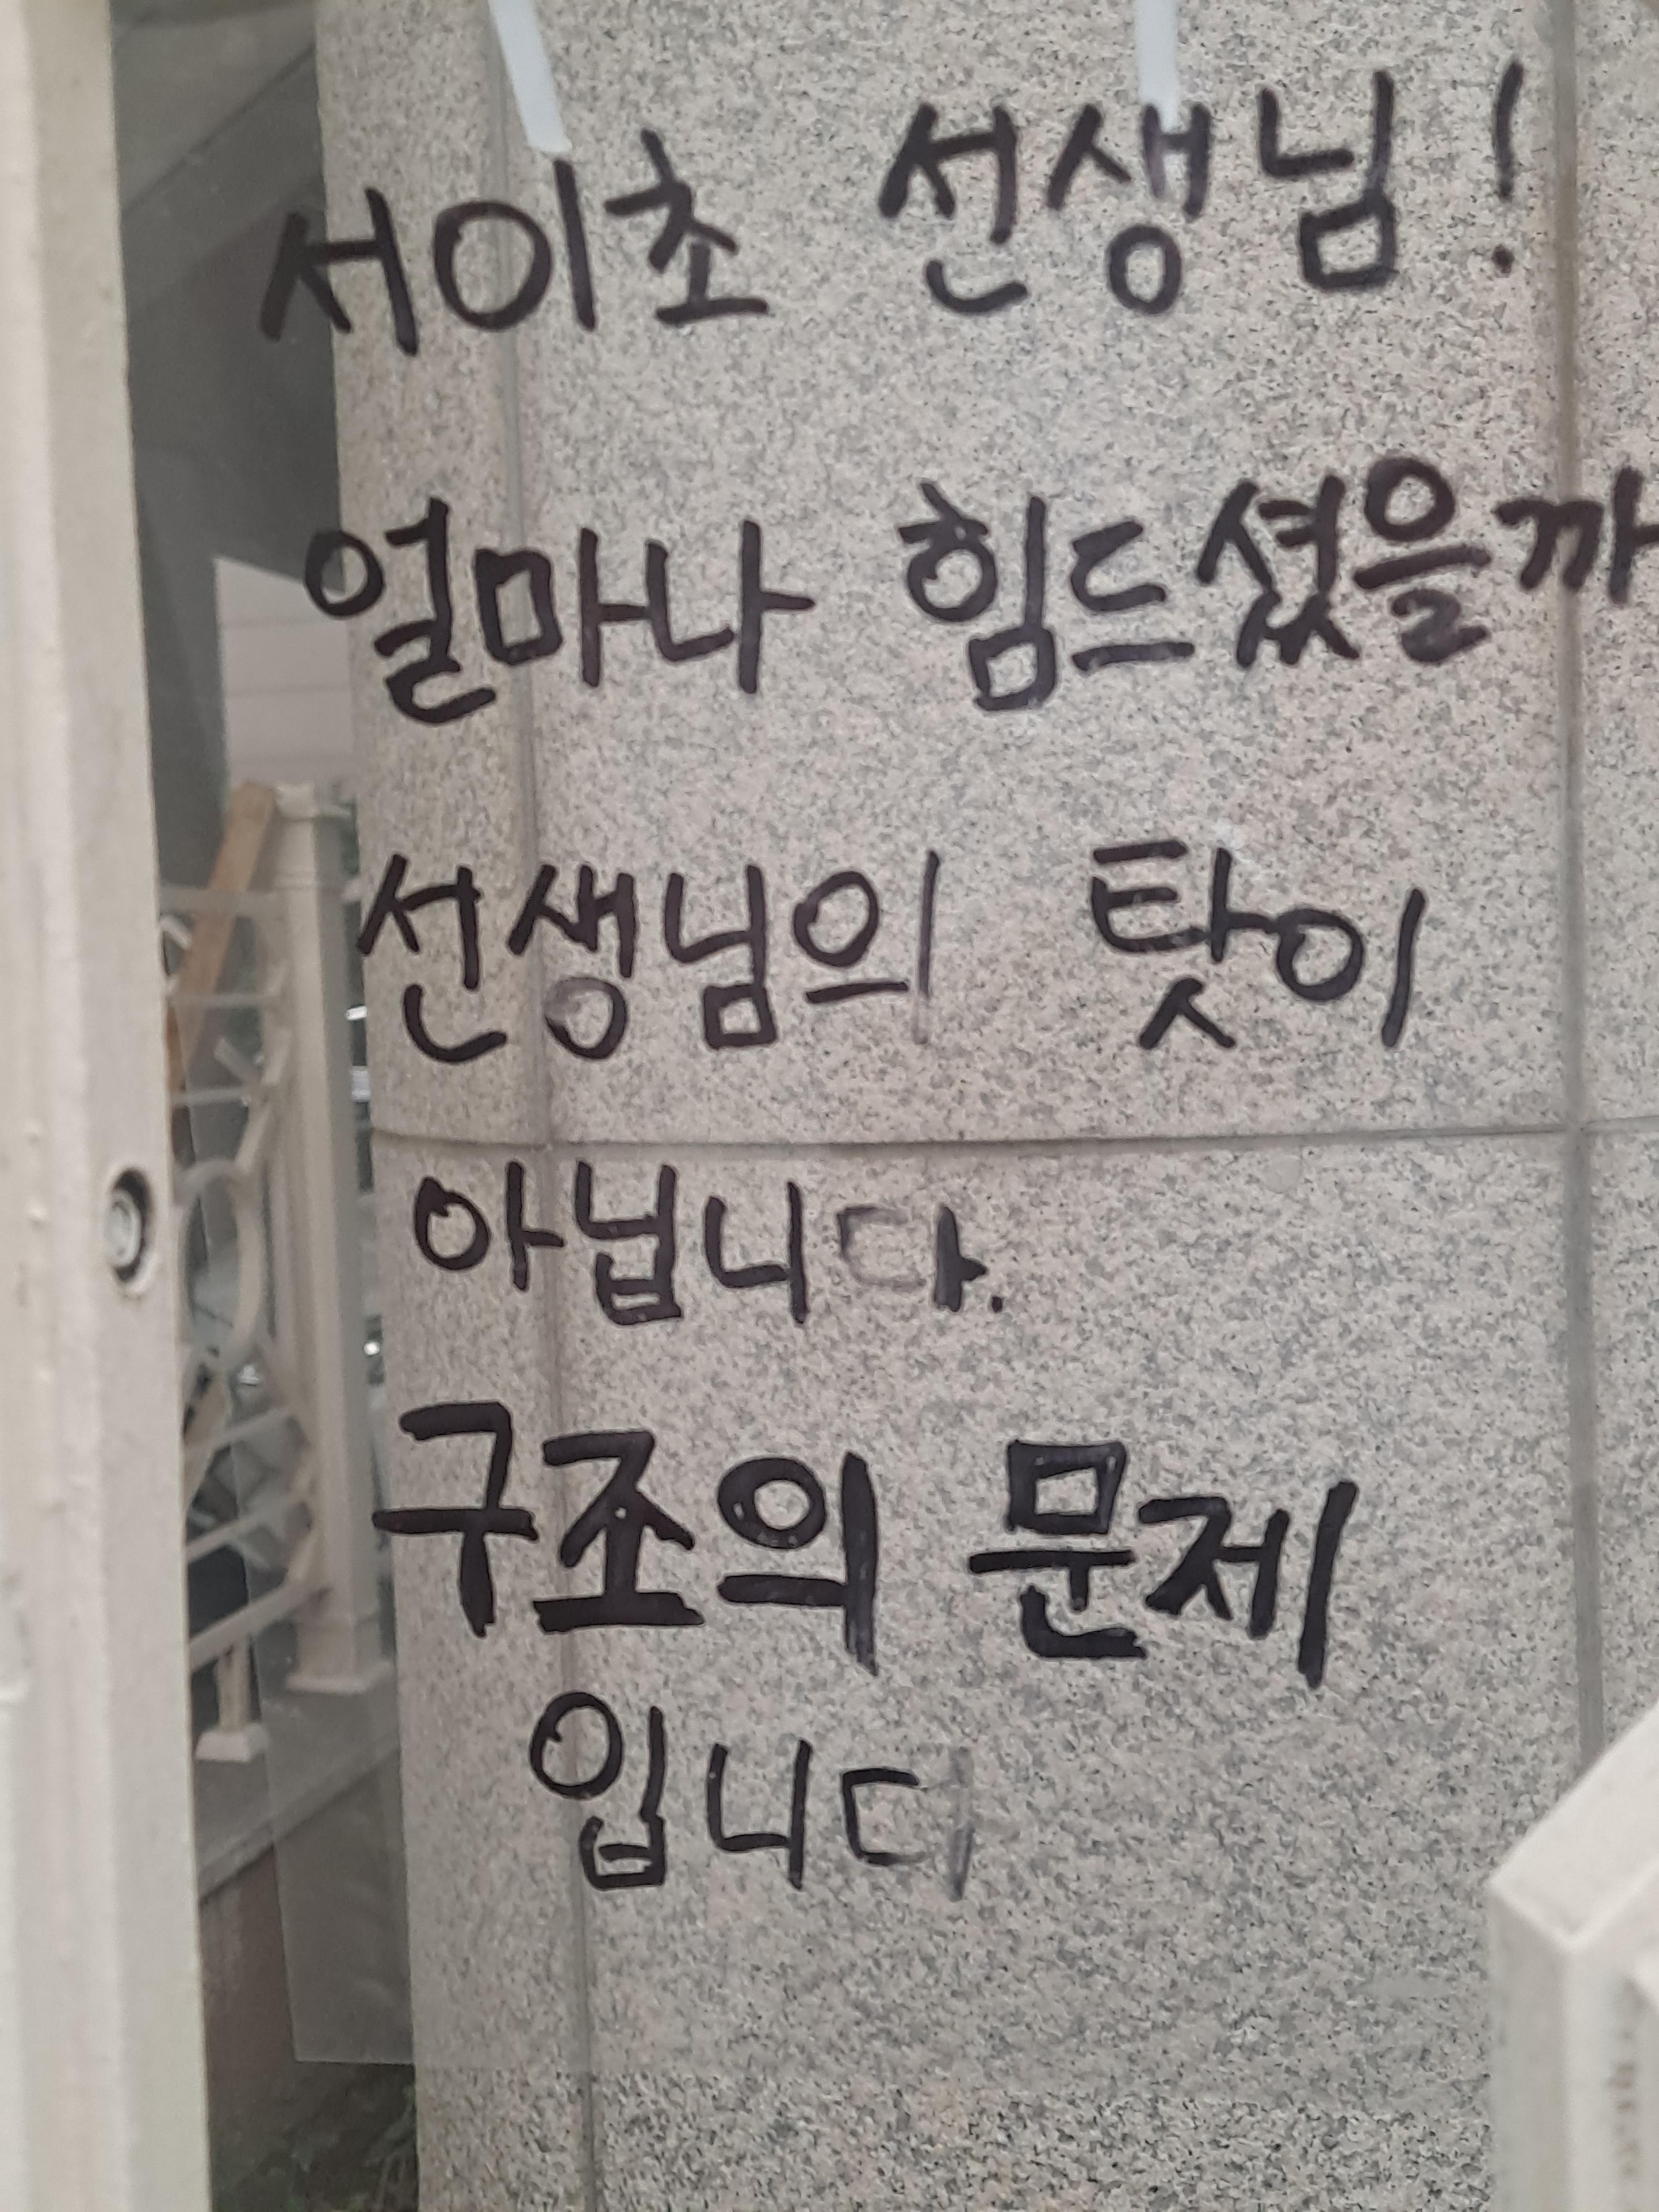 서이초 선생님!
얼마나 힘드셨을까
선생님의 탓이
아닙니다.
구조의 문제
입니다